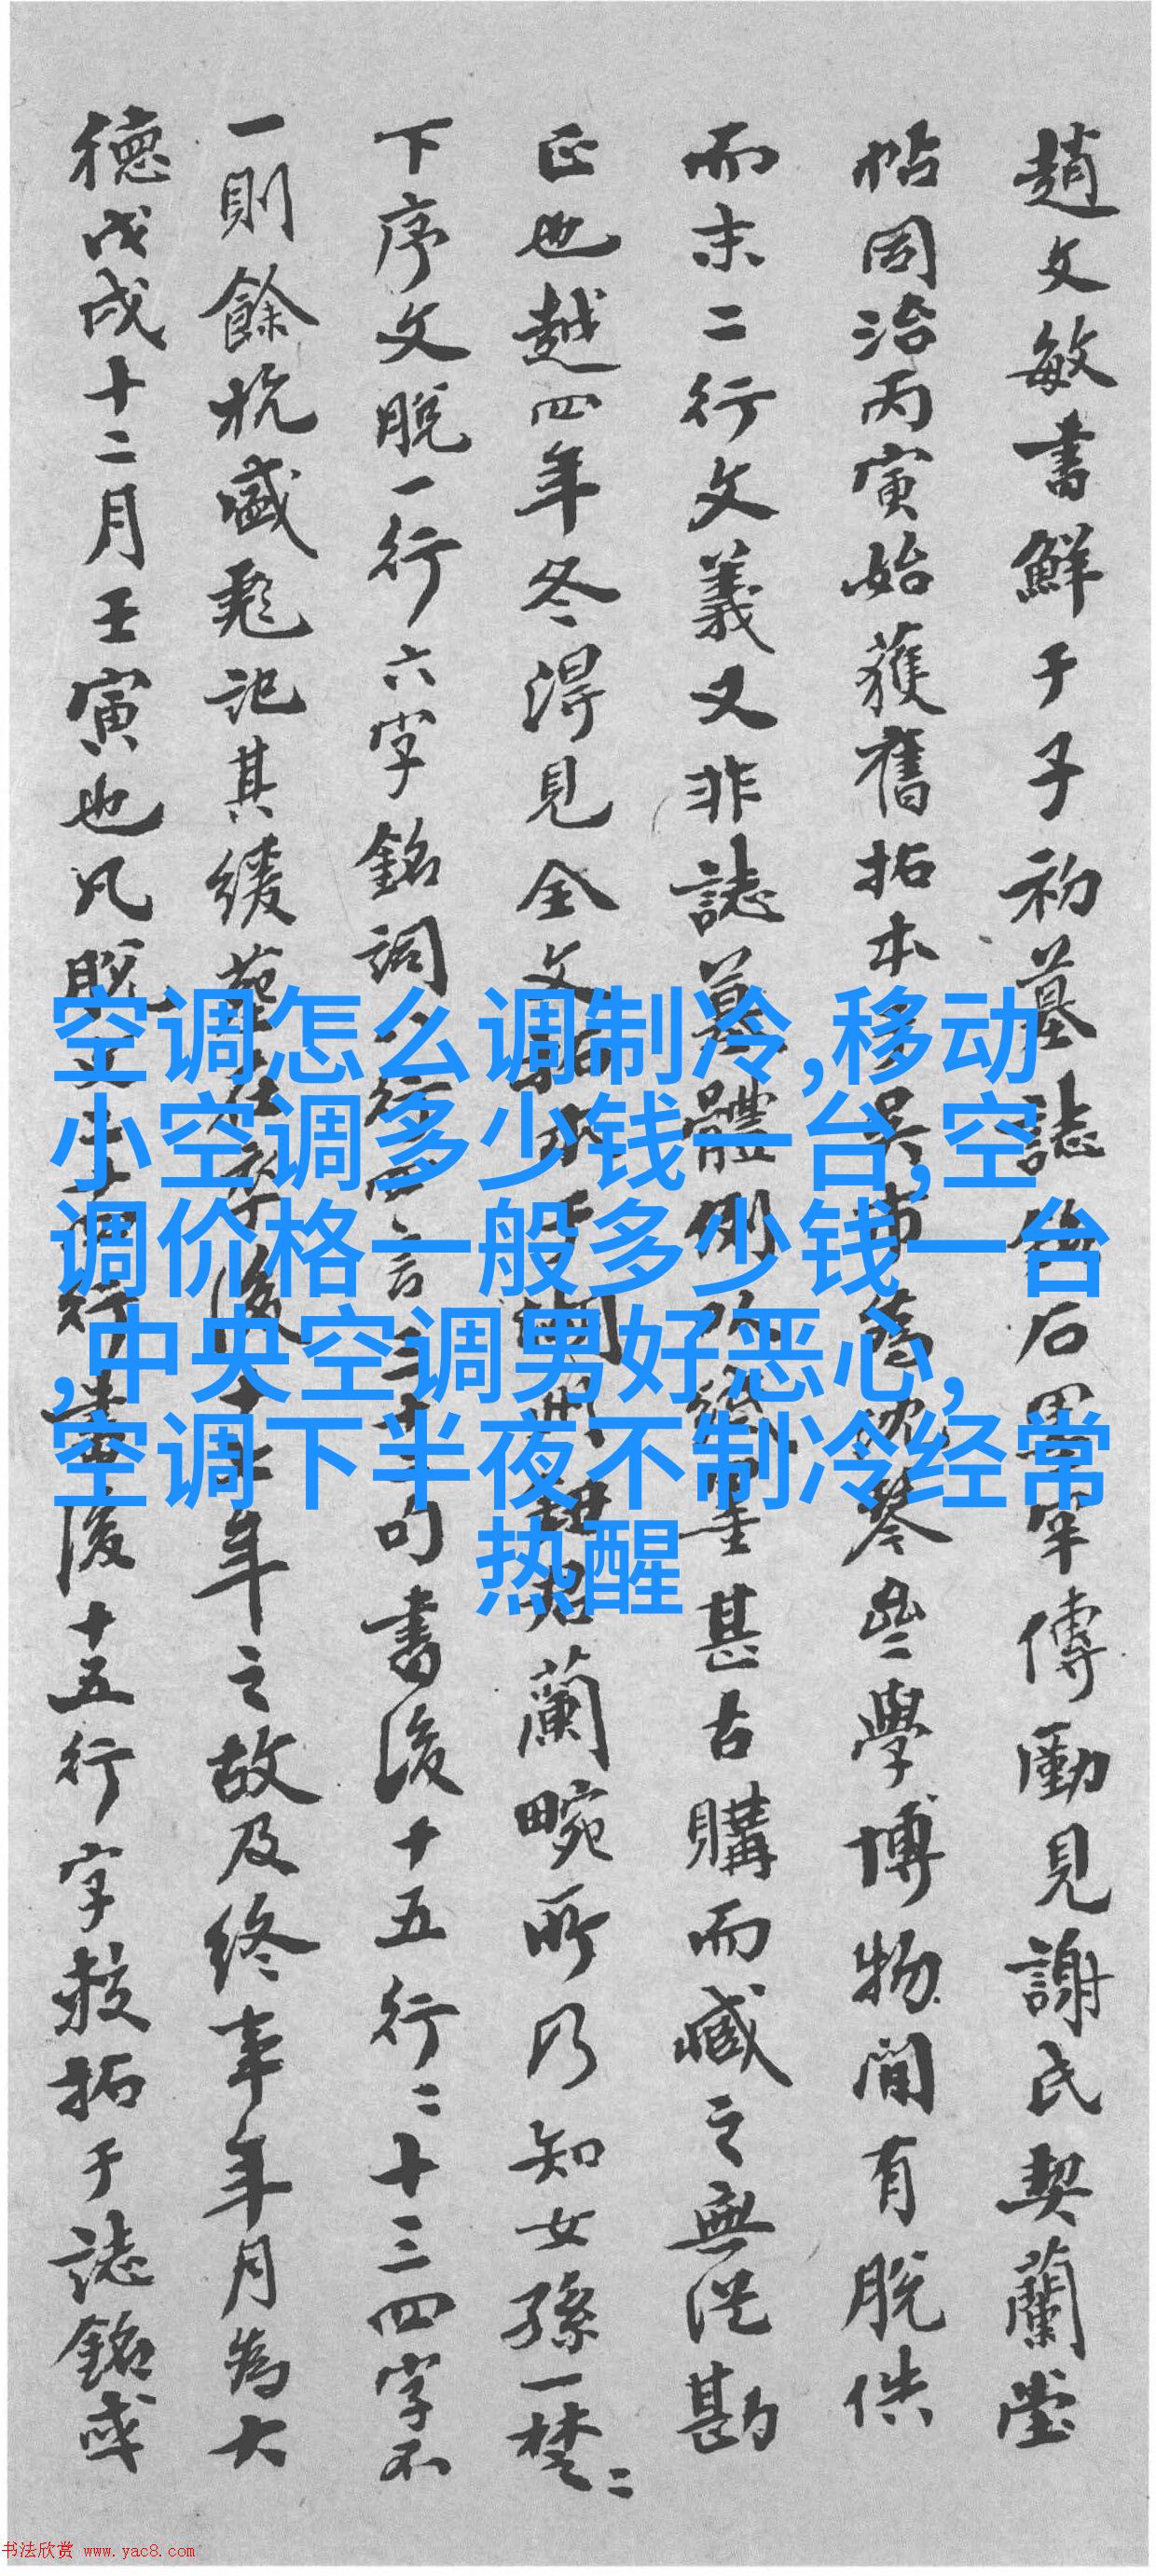 趙文敏書鮮于子初墓誌
石
傅
見謝氏契蘭堂
帖同治丙寅始獲舊拓本
琴
學博物間有脫佚
而末二行文義又非誌墓體例
甚古購而藏之無從勘
正也越四年冬得見全文
蘭畹所乃知女孫一
下序文脫一行六字銘詞八行四言三十二句書後十五行二十三四字不
一則餘杭盛彪記其緩葬
後
年之故及終事年月為大
德戊戌十二月壬寅也凡脫
書後十五行字數拓于誌銘或
空调怎么调制冷,移动
小空调多少钱一台,空
调价格一般多少钱一台
,中央空调男好恶心,
空调下半夜不制冷经常
热醒
书法欣赏 www.yac8.com